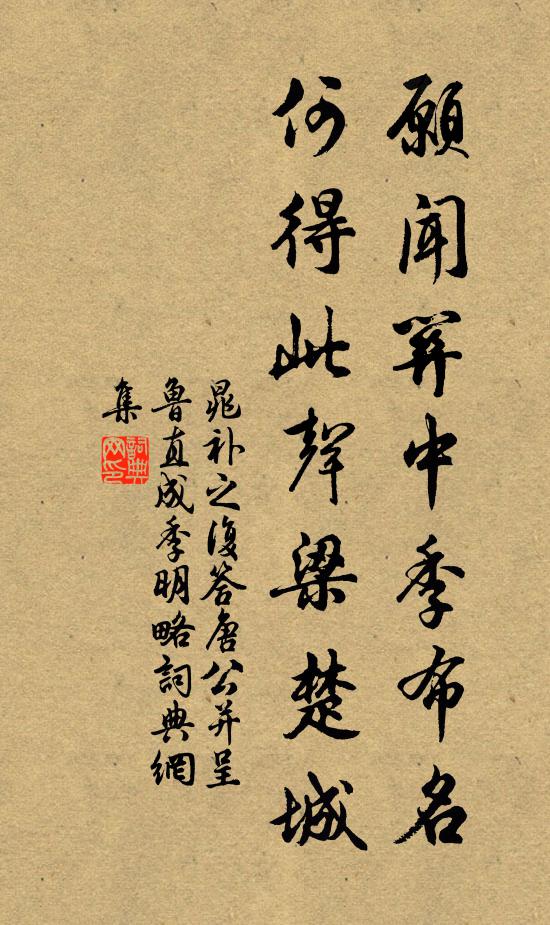 願聞關中季布名
何得此聲梁楚城
晁補之復答唐公并呈
魯直成季明略詞典網
集
詞典网印